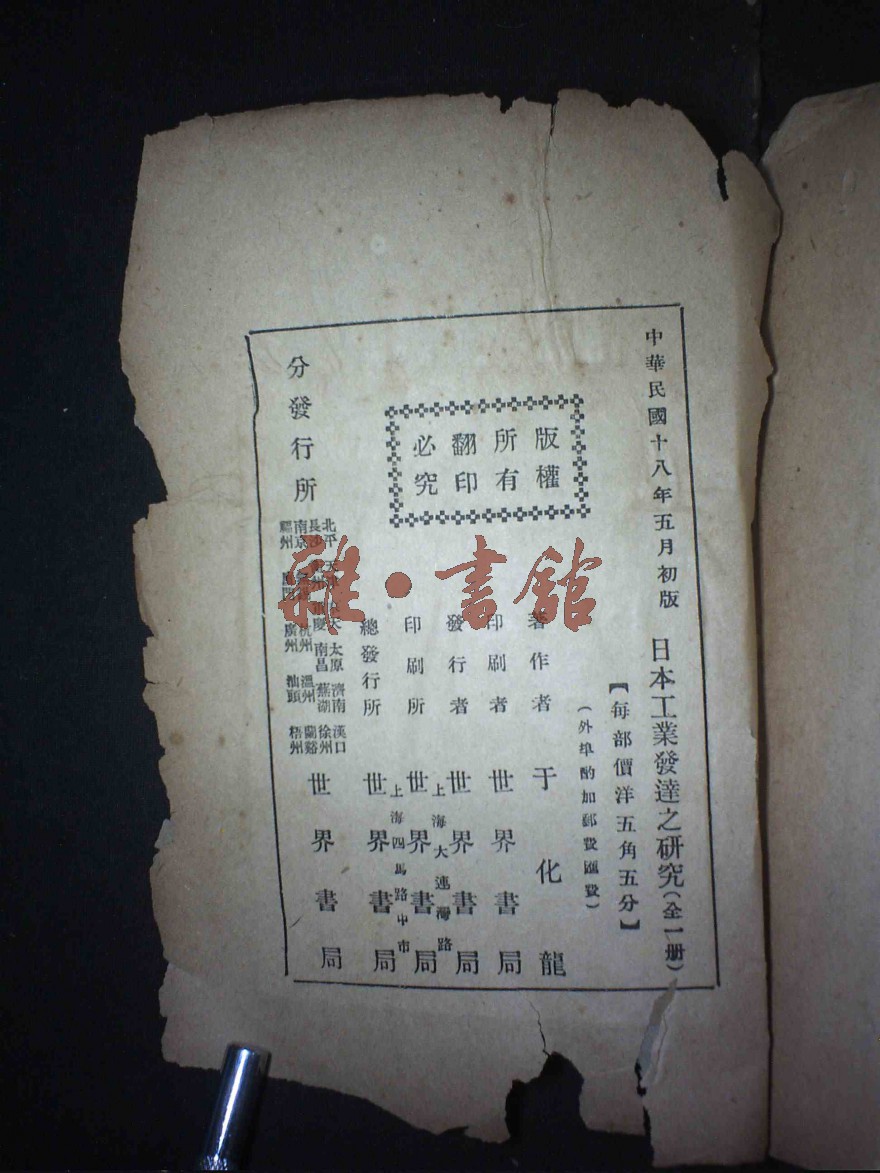 中華民國十八年五月初版
日本工業發達之研究(全一册)
【每部價洋五角五分】
(外埠酌加郵費匯費)
版權
所有
翻印
必究
著作者 于化龍
印刷者 世界書局
發行者 世界書局
印刷所 上海大連灣路 世界書局
總發行所 上海四馬路中市 世界書局
分發行所
北平 天 太原 濟南 漢口
長沙 州 慶 南昌 蕪湖 徐州
南京 杭州 溫州 蘭谿
州 廣州 汕頭 梧州
世界書局
雜·書館